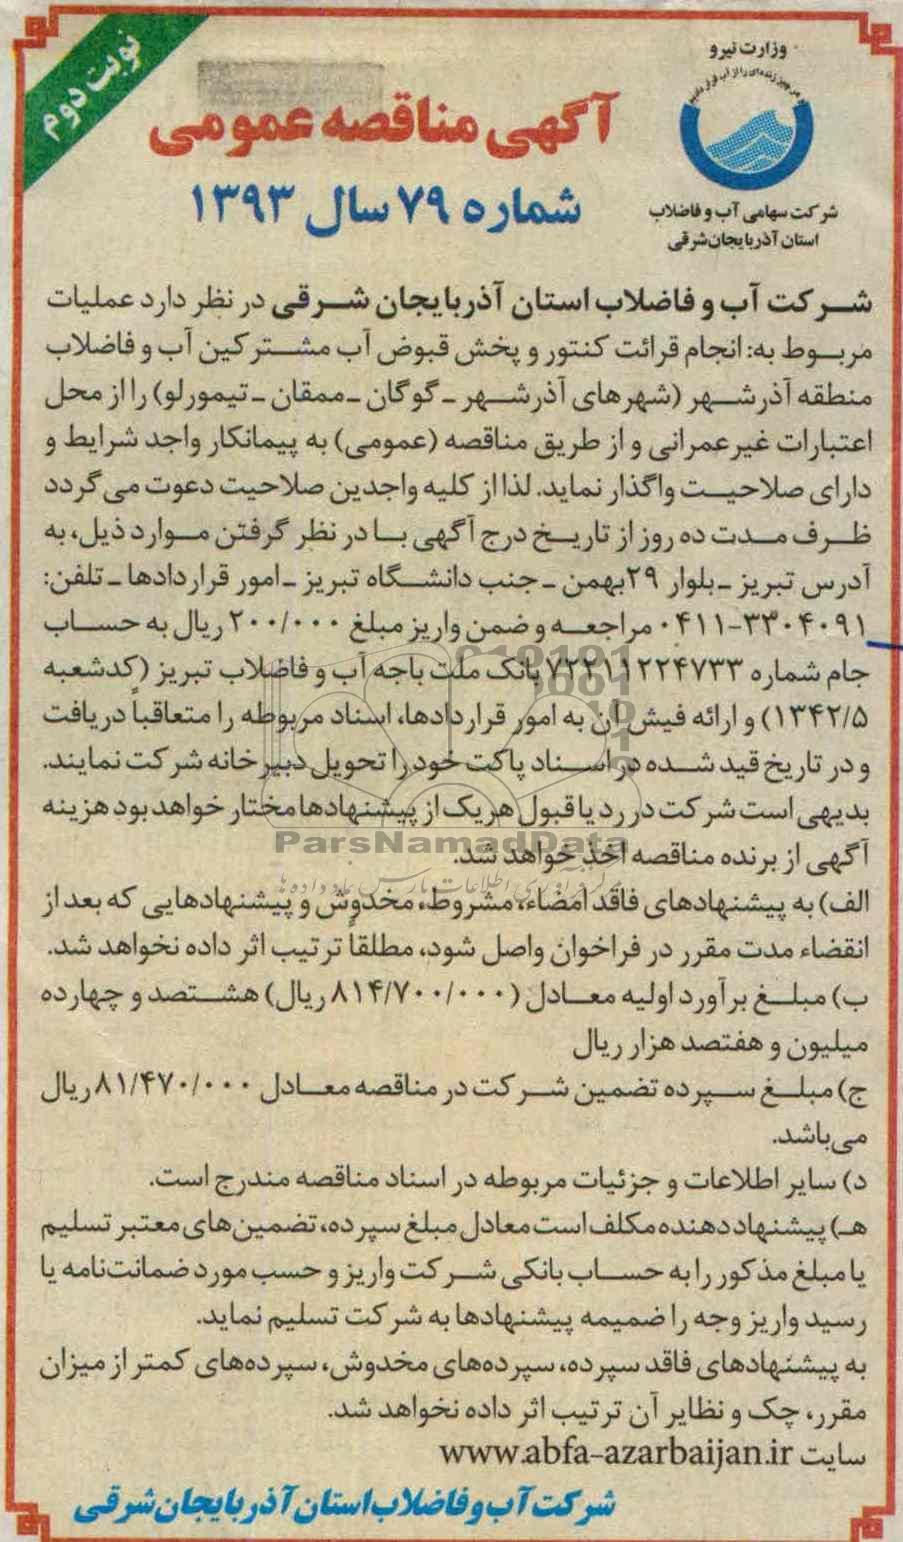 نوبت دوم
وزارت نیرو
شرکت سهامی آب و فاضلاب
استان آذربایجان شرقی
آگهی مناقصه عمومی
شماره ۷۹ سال ۱۳۹۳
شرکت آب و فاضلاب استان آذربایجان شرقی در نظر دارد عملیات
مربوط به: انجام قرائت کنتور و پخش قبوض آب مشترکین آب و فاضلاب
منطقه آذرشهر (شهرهای آذرشهر ـ گوگان ـ ممقان ـ تیمورلو) را از محل
اعتبارات غیرعمرانی و از طریق مناقصه (عمومی) به پیمانکار واجد شرایط و
دارای صلاحیت واگذار نماید. لذا از کلیه واجدین صلاحیت دعوت می گردد
ظرف مدت ده روز از تاریخ درج آگهی با در نظر گرفتن موارد ذیل، به
آدرس تبریز ـ بلوار ۲۹بهمن ـ جنب دانشگاه تبریز ـ امور قراردادها ـ تلفن:
۰۴۱۱-۳۳۰۴۰۹۱ مراجعه و ضمن واریز مبلغ ۲۰۰/۰۰۰ ریال به حساب
جام شماره ۷۲۲۱۱۲۲۴۷۳۳ بانک ملت باجه آب و فاضلاب تبریز (کدشعبه
۱۳۴۲/۵) و ارائه فیش آن به امور قراردادها، اسناد مربوطه را متعاقباً دریافت
و در تاریخ قید شده در اسناد پاکت خود را تحویل دبیرخانه شرکت نمایند.
بدیهی است شرکت در رد یا قبول هر یک از پیشنهادها مختار خواهد بود هزینه
آگهی از برنده مناقصه اخذ خواهد شد.
ParsNamadData
الف) به پیشنهادهای فاقد امضاء، مشروط، مخدوش و پیشنهادهایی که بعد از
انقضاء مدت مقرر در فراخوان واصل شود، مطلقاً ترتیب اثر داده نخواهد شد.
ب) مبلغ برآورد اولیه معادل (۸۱۴/۷۰۰/۰۰۰ ریال) هشتصد و چهارده
میلیون و هفتصد هزار ریال
ج) مبلغ سپرده تضمین شرکت در مناقصه معادل ۸۱/۴۷۰/۰۰۰ ریال
می‌باشد.
د) سایر اطلاعات و جزئیات مربوطه در اسناد مناقصه مندرج است.
هـ) پیشنهاد دهنده مکلف است معادل مبلغ سپرده، تضمین‌های معتبر تسلیم
یا مبلغ مذکور را به حساب بانکی شرکت واریز و حسب مورد ضمانت‌نامه یا
رسید واریز وجه را ضمیمه پیشنهادها به شرکت تسلیم نماید.
به پیشنهادهای فاقد سپرده، سپرده‌های مخدوش، سپرده‌های کمتر از میزان
مقرر، چک و نظایر آن ترتیب اثر داده نخواهد شد.
سایت www.abfa-azarbaijan.ir
شرکت آب و فاضلاب استان آذربایجان شرقی